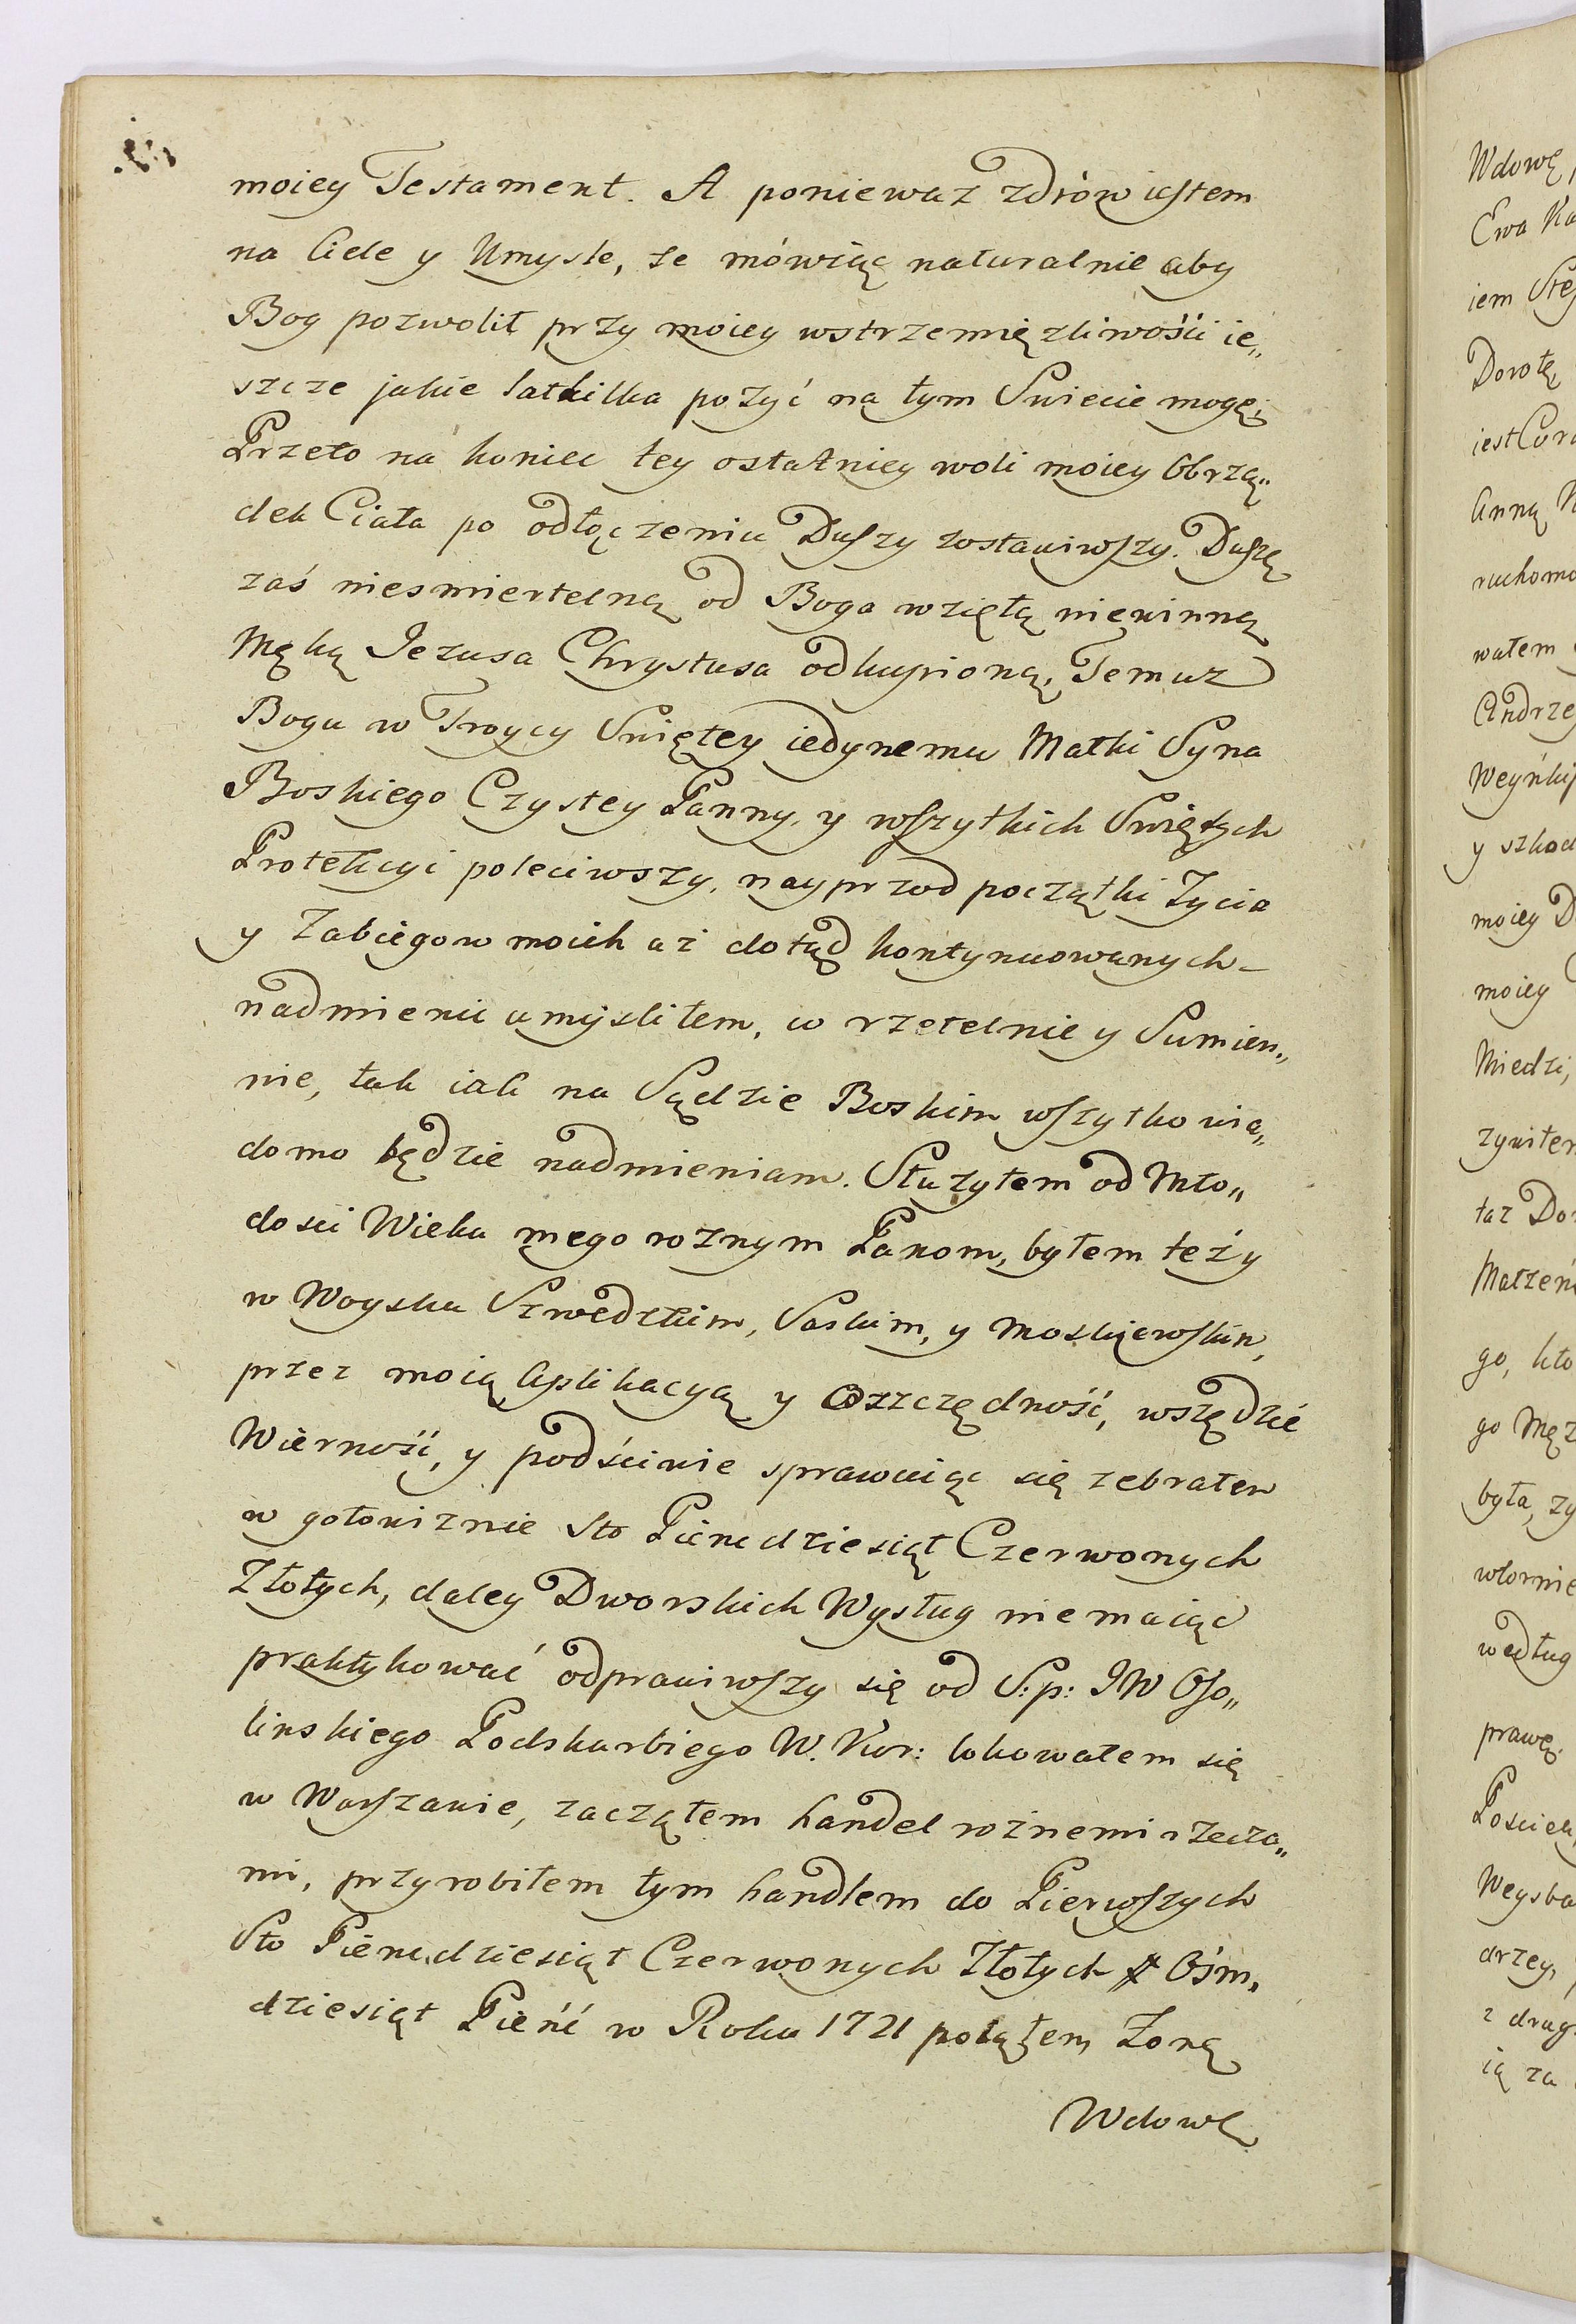 moiey Testament. A ponieważ zdrów iestem
na Ciele y Umysle, że mówiąc naturalnie aby
Bog pozwolił przy moiey wstrzemięzliwości ie„
szcze jakie latkilka pożyć na tym Swiecie mogę;
Przeto na koniec tey ostatniey woli moiey Obrzą„
dek Ciała po odłączeniu Duszy zostawiwszy. Duszę
zaś niesmiertelną od Boga wziętą niewinną
Męką Jezusa Chrystusa odkupioną, Temuż
Bogu w Troycy Swiętey iedynemu Matki Syna
Boskiego Czystey Panny, y wszytkich Swiętych
Protekcyi poleciwszy, nayprzod początki Życia
y Zabiegow moich aż dotąd kontynuowanych
nadmienić umysliłem, co rzetelnie y Sumien„
nie, tak iak na Sądzie Boskim wszytko wia„
domo będzie nadmieniam. Służyłem od Mło„
dosci Wieku mego rożnym Panom, byłem teży
w Woysku Szwedzkim, Saskim, y Moskiewskim,
przez moią Aplikacyą y Oszczędność, wszędzie
Wierność, y podściwie sprawuiąc się zebrałem
w gotowiznie Sto Pieńdziesiąt Czerwonych
Złotych, daley Dworskich Wysług nie maiąc
praktykować odprawiwszy się od S: p: JW Oso„
linskiego Podskarbiego W. Kor: lokowałem się
w Warszawie, zaczątem handel rożnemi rzecza„
mi, przyrobiłem tym handlem do Pierwszych
Sto Pieńdziesiąt Czerwonych Złotych Ośm„
dziesiąt Pieńć w Roku 1721 poiąłem Żonę
Wdowę
Wdowę,
Ewa
iem
Dorotę
iest
Anną
ruchomo
wałem
Andrze
y szkod
moiey D
moiey
Miedzi,
taż Do
Małżeń
go, kto
go Męż
była, zy
według
prawę.
drzey,
z drug
ią za